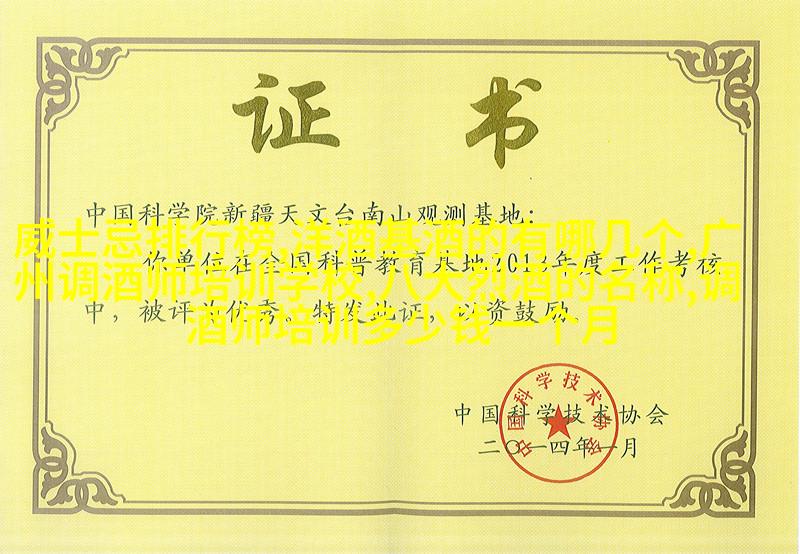 证书
中国科学院新疆天文台南山观测基地:
威士忌排行榜,洋酒基酒的有哪几个,广
你单位在全国科普教育基地2013年度工作考核
州调酒师培训学校,八大烈酒的名称,调
中，被评为优秀。特发此证，以资鼓励。
酒师培训多少钱一个月
中国科学技术协会
二〇一四年一月
中国科学技术协会